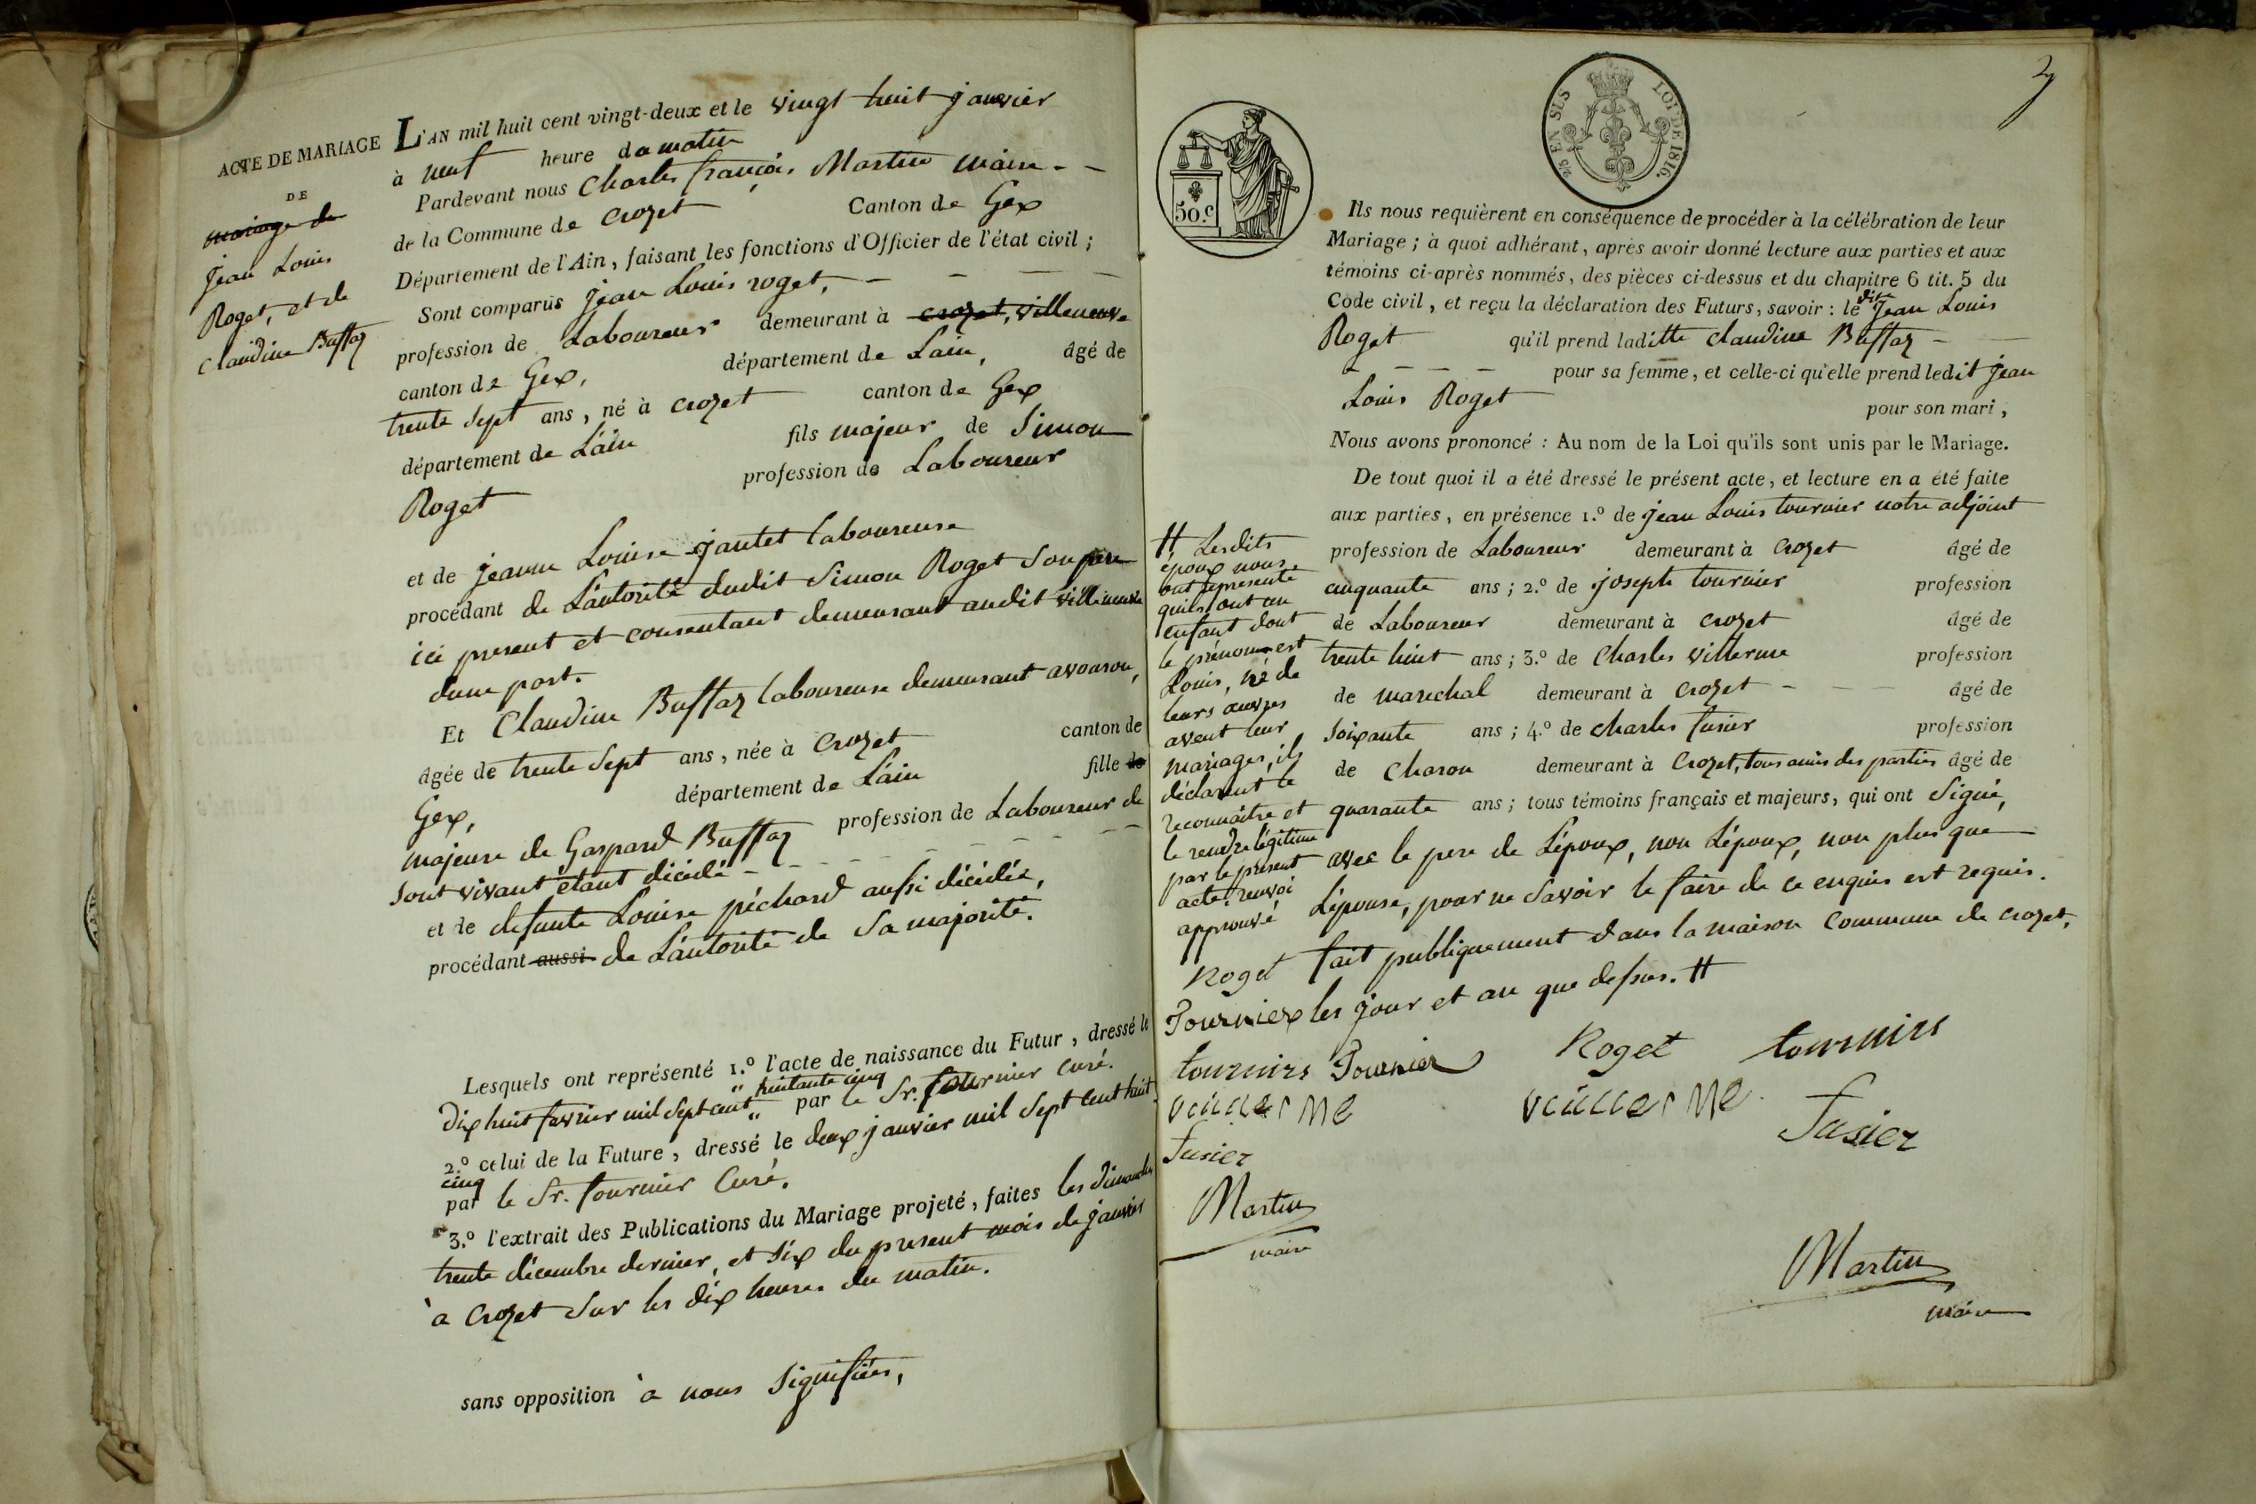 ACTE DE MARIAGE
DE
mariage de
Jean Louis
Roget, et de
Claudine Buffaz
L'AN mil huit cent vingt-deux et le vingt huit janvier
à neuf heure du matin
Pardevant nous Charles françois Martin maire
de la Commune de Crozet Canton de Gex
Département de l'Ain, faisant les fonctions d'Officier de l'état civil ;
Sont comparus jean Louis roget,
profession de Laboureur demeurant à crozet, villeneuve
canton de Gex, département de Lain, âgé de
trente sept ans, né à crozet canton de Gex
département de Lain fils majeur de Simon
Roget profession de Laboureur
et de jeanne Louise jantet laboureuse
procédant de Lautorité dudit Simon Roget son pere
ici present et consentant demeurant audit villeneuve
dune part.
Et Claudine Buffaz laboureuse demeurant avouson,
âgée de trente sept ans, née à Crozet canton de
Gex, département de Lain fille de
majeure de Gaspard Buffaz profession de Laboureur de
sont vivant étant décédé
et de defunte Louise péchard aussi décédée,
procédant aussi de Lautorité de sa majorité.
Lesquels ont représenté 1.º l'acte de naissance du Futur, dressé le
huitante cinq
dix huit fevrier mil sept cent " " par le Sr. fournier curé.
2.º celui de la Future, dressé le deux janvier mil sept cent huit
cinq
par le Sr. fournier Curé.
3.º l'extrait des Publications du Mariage projeté, faites les dimanches
trente décembre dernier, et six du present mois de janvier
à Crozet sur les dix heures du matin.
sans opposition à nous signifiées,
3
50.c
25 EN SUS
LOI DE 1816.
Ils nous requièrent en conséquence de procéder à la célébration de leur
Mariage ; à quoi adhérant, après avoir donné lecture aux parties et aux
témoins ci-après nommés, des pièces ci-dessus et du chapitre 6 tit. 5 du
Code civil, et reçu la déclaration des Futurs, savoir : le dit Jean Louis
Roget qu'il prend laditte claudine Buffaz
pour sa femme, et celle-ci qu'elle prend ledit jean
Louis Roget pour son mari,
Nous avons prononcé : Au nom de la Loi qu'ils sont unis par le Mariage.
De tout quoi il a été dressé le présent acte, et lecture en a été faite
aux parties, en présence 1.º de jean Louis tournier notre adjoint
profession de Laboureur demeurant à Crozet âgé de
cinquante ans ; 2.º de joseph tournier profession
de Laboureur demeurant à crozet âgé de
trente huit ans ; 3.º de Charles villerme profession
de marechal demeurant à Crozet âgé de
soixante ans ; 4.º de charles fusier profession
de Charon demeurant à Crozet, tous amis des parties âgé de
quarante ans ; tous témoins français et majeurs, qui ont signé,
avec le pere de Lépoux, non Lépoux, non plus que
Lépouse, pour ne savoir le faire de ce enquis est requis.
fait publiquement dans la maison Commune de crozet,
les jour et an que dessus. #
# Lesdits
époux nous
ont représenté
quils ont eu
enfant dont
le prénom est
Louis, né de
leurs œuvres
avent leur
mariages, ils
déclarent le
reconnaître et
le rendre légitime
par le présent
acte, renvoi
approuvé
Roget
Tournier
tournirs Tournier
Fusier
Martin
maire
Roget tournirs
Fusier
Martin
maire